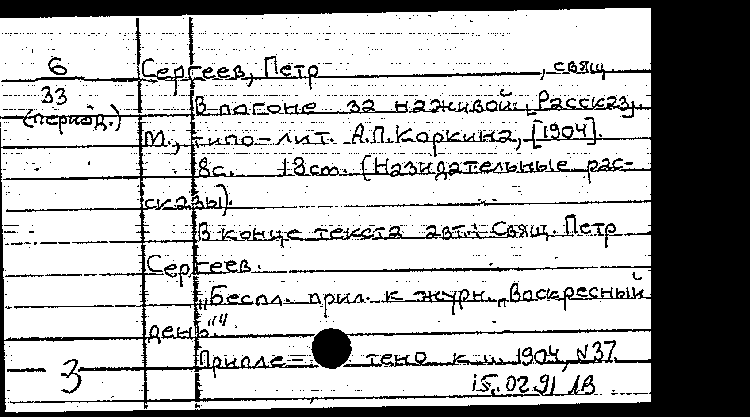 6
33
(период.)
Сергеев, Петр , свящ.
В погоне за наживой. [Рассказ].
М., типо-лит. А.П.Коркина, [1904].
8с. 18cm. (Назидательные рас-
сказы).
В конце текста авт.: Свящ. Петр
Сергеев.
„Беспл. прил. к журн. „Воскресный
день“"
Припле- тено к 1904, N37.
3
15.02.91